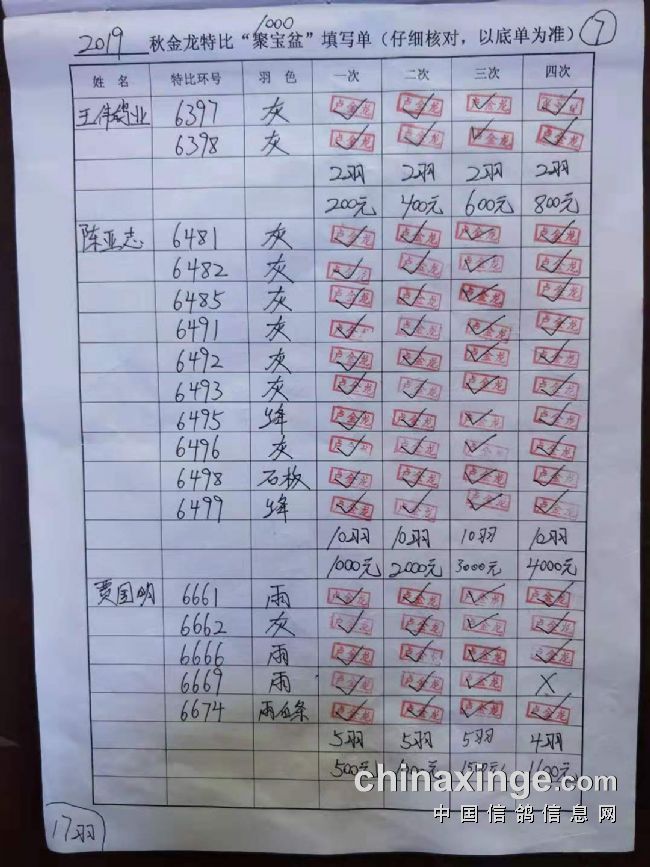 1000
2019 秋金龙特比“聚宝盆”填写单（仔细核对，以底单为准） 7
姓 名 特比环号 羽 色 一次 二次 三次 四次
王伟销业 6397 灰 卢金龙 卢金龙 卢金龙 卢金龙
6398 灰 卢金龙 卢金龙 卢金龙 卢金龙
2羽 2羽 2羽 2羽
200元 400元 600元 800元
陈亚志 6481 灰 卢金龙 卢金龙 卢金龙 卢金龙
6482 灰 卢金龙 卢金龙 卢金龙
6485 灰 卢金龙 卢金龙 卢金龙 卢金龙
6491 灰 卢金龙 卢金龙 卢金龙 卢金龙
6492 灰 卢金龙 卢金龙 卢金龙 卢金龙
6493 灰 卢金龙 卢金龙 卢金龙 卢金龙
6495 绛 卢金龙 卢金龙 卢金龙 卢金龙
6496 灰 卢金龙 卢金龙 卢金龙 卢金龙
6498 石板 卢金龙 卢金龙 卢金龙 卢金龙
6499 绛 卢金龙 卢金龙 卢金龙 卢金龙
10羽 10羽 10羽 10羽
1000元 2000元 3000元 4000元
贾国明 6661 雨 卢金龙 卢金龙 卢金龙 卢金龙
6662 灰 卢金龙 卢金龙 卢金龙 卢金龙
6666 雨 卢金龙 卢金龙 卢金龙 卢金龙
6669 雨 卢金龙 卢金龙 卢金龙 X
6674 雨白条 卢金龙 卢金龙 卢金龙 卢金龙
5羽 5羽 5羽 4羽
500元 1500元 1600元
chinaxinge.com
中国信鸽信息网
17羽